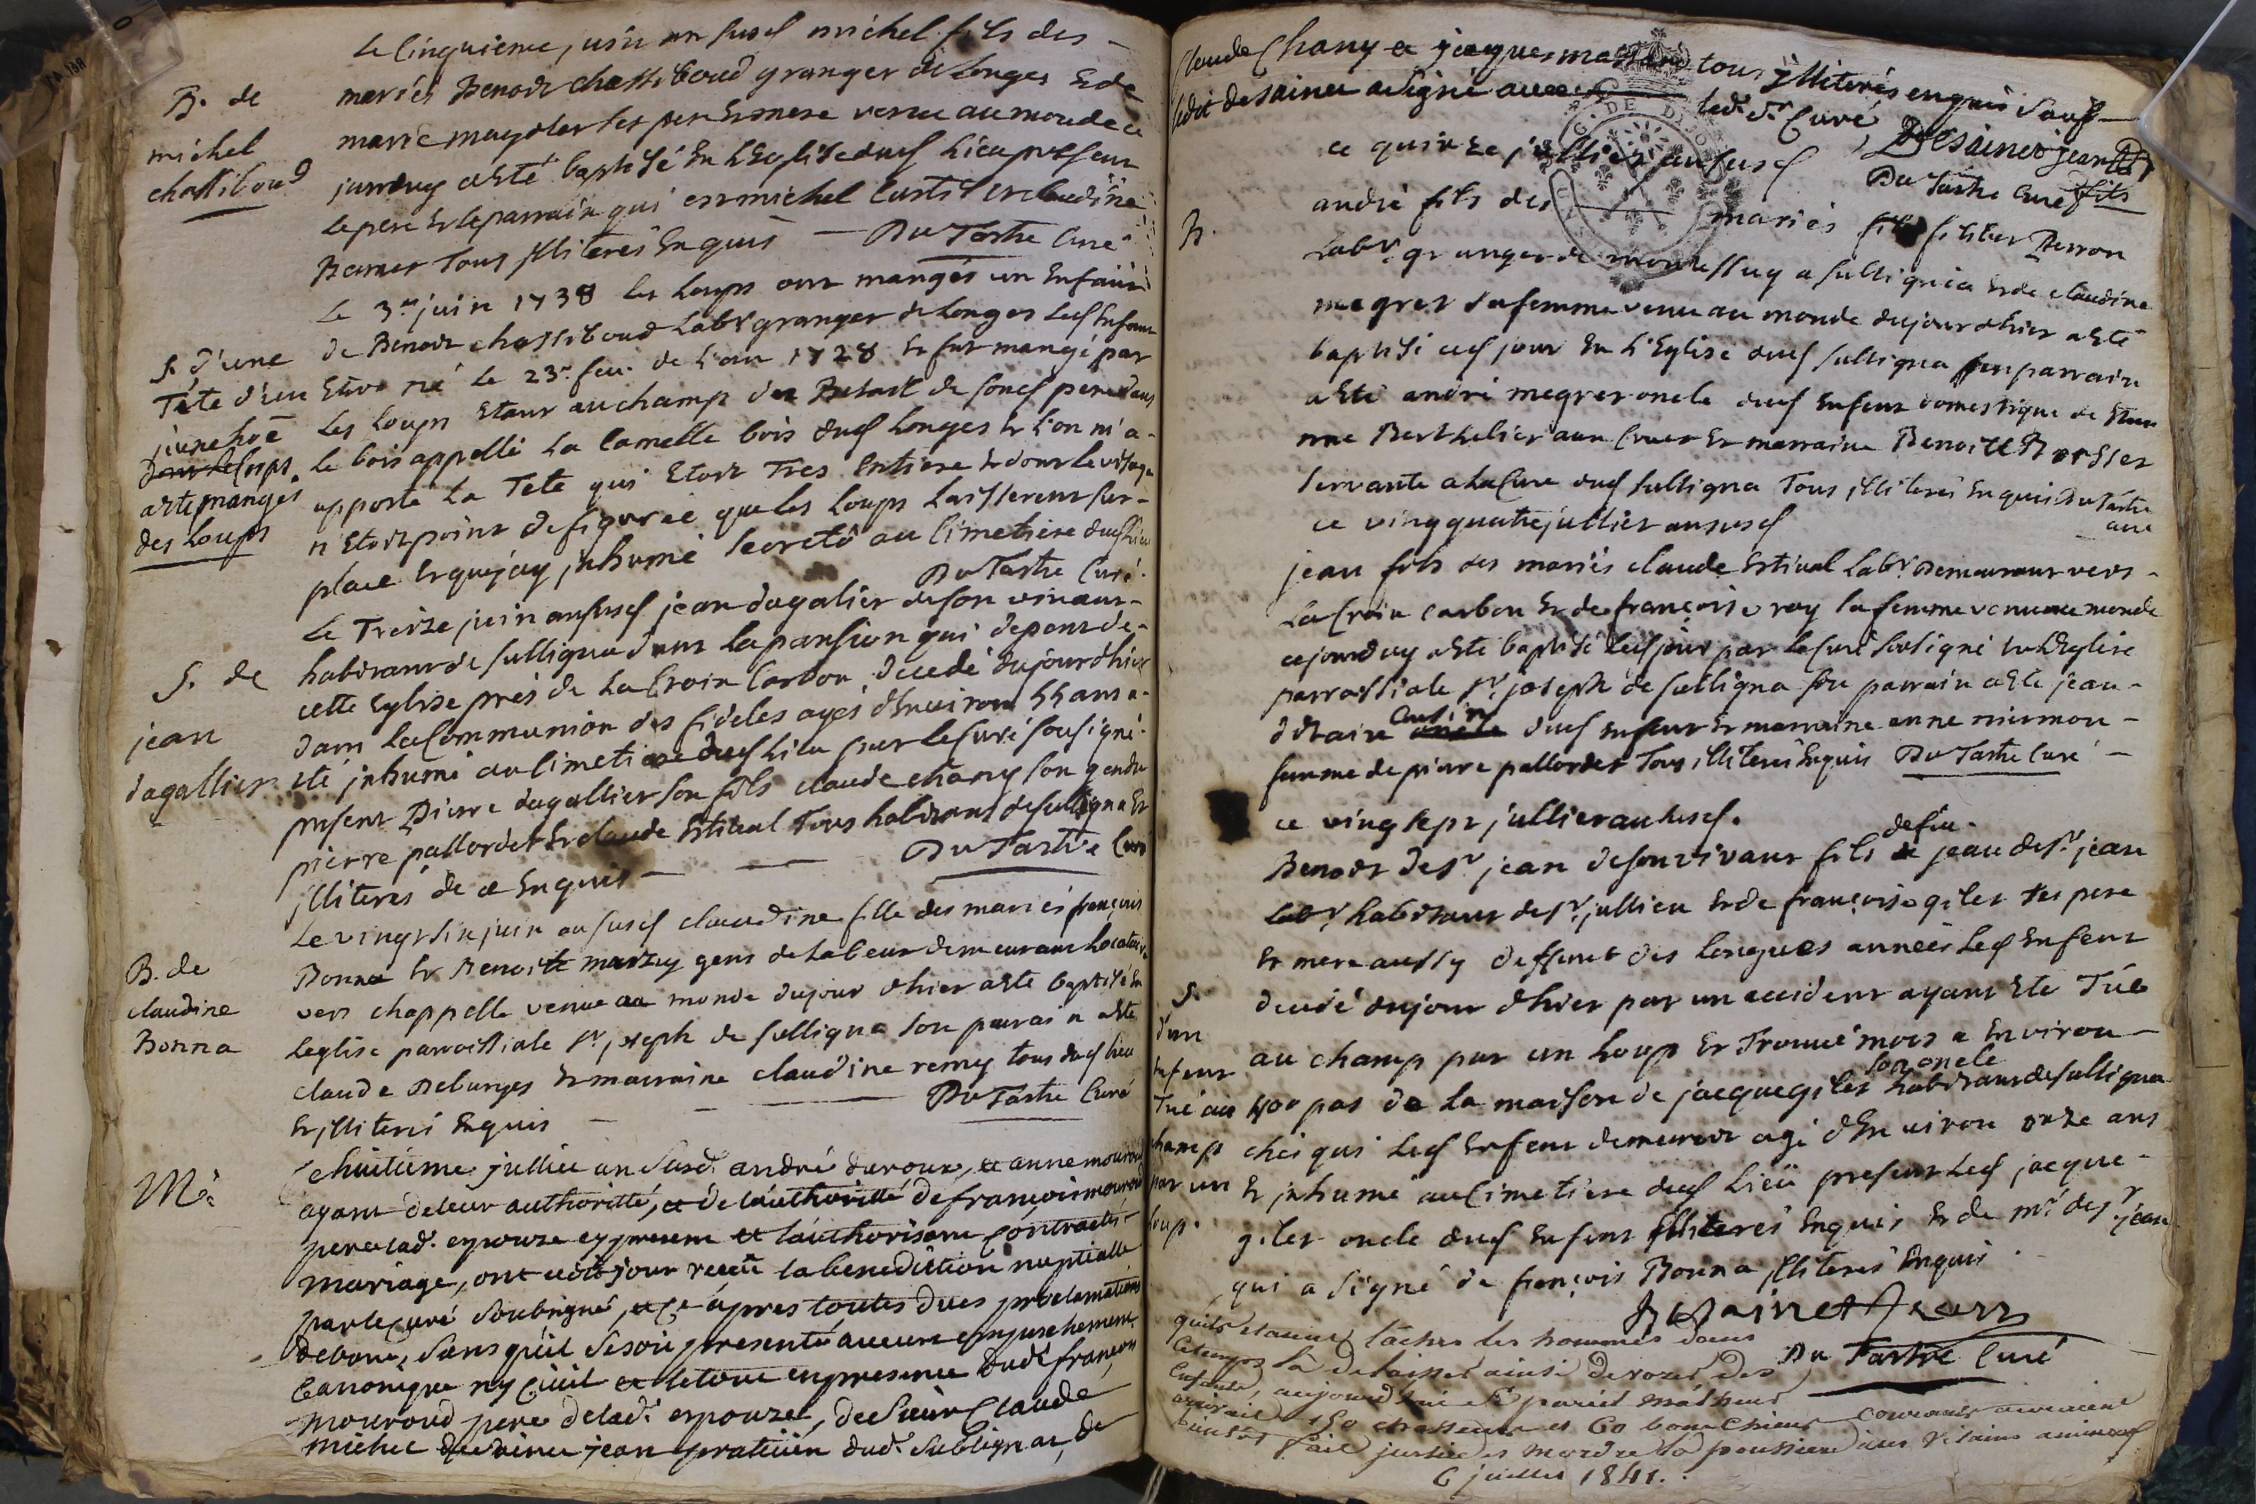 Le Cinquieme juin an susd michel fils des
B. de michel chassiboud
mariés Benoit chassiboud granger de Longes Et de
marie mayoler ses per Et mere venu au monde ce
jourduy a Esté baptisé En L'Eglise dud Lieu present
le pere Et le parrain qui est michel Curtil Et Claudine
Tous illiterés Enquis — Du Tartre Curé
S. d'une Tête d'un jeune hoe dont le Corps a esté mangé des Loups
Le 3me juin 1738 les Loups ont mangés un Enfant
de Benoit chassiboud Labr granger de Longes Led Enfant
Etoit né le 23e fev. de L'an 1728 Et fut mangé par
Les Loups Etant au champ du Betail de sond pere dans
Le bois appellé La Camette bois dud Longes Et L'on m'a
apporté La Tete qui Etoit Tres Entiere Et dont le visage
n'Etoit point defigurée que les Loups Laisserent sur
place Et que j'ay inhumé au Cimetiere dud Lieu
Du Tartre Curé
S. de jean dagallier
Le Treize juin an susd jean dagalier de son vivant
habitant de sulligna dans La pansion qui depent de
cette Eglise près de La Croix Carbon decedé dujourdhier
dans La Communion des fideles agé d'Environ 55 ans a
eté inhumé au Cimetiere dud Lieu par Le Curé sousigné
present Pierre dagallier son fils claude chany son gendre
pierre pallordet Et claude Estival Tous habitans de sulligna Et
illiterés de ce Enquis — Du Tartre Curé
B. de claudine Bonna
Le vingt six juin an susd claudine fille des mariés françois
Bonna Et Benoite marzuy gens de Labeur demeurant Locataire
vers chappelle venue au monde dujour dhier a Esté baptisé En
Leglise parroissiale St joseph de sulligna son parrain a Esté
claude Deburges Et marraine claudine remy tous dud Lieu
Et illiterés Enquis — Du Tartre Curé
Me
Le huitieme julliet an susd. andré duroux, et anne mouroud
ayant de leur authoritté, et de l'authoritté de francois mouroud
pere de lad. epouze cy present et l'authorisant contracté
mariage, ont cedit jour receu la benediction nuptialle
par le Curé soubsigné, et ce apres toutes dues proclamations
de bans, sans qu'il se soit presenté aucun empeschement
Canonique ny Civil et le tout en presence dudt francois
mouroud pere de lad. epouze, de Sieur Claude
michel desainct jean praticien dud. Sublignat, de
Claude Chany et jacques tous illiterés enquis sauf
ledit desainct a signé avec led. sr Curé
Desainct jean fils
Du Tartre Curé
ce quinze jullier an susd
B.
andré fils des mariés filiber Perron
Labr granger de montessuy a sulligna Et de claudine
megret sa femme venu au monde dujourdhier a Esté
baptisé ced jour En L'Eglise dud sulligna son parrain
a Esté andré megret oncle dud Enfent domestique de Etien
nne Berthelier Et marraine Benoitte
servante a La Cure dud sulligna Tous illiterés Enquis Du Tartre curé
ce vingt quatre jullier an susd
jean fils des mariés claude Estival Labr Demeurant vers
La Croix Carbon Et de françoise ray sa femme venu au monde
cejourduy a Esté baptisé Led jour par Le Curé sousigné En L'Eglise
parroissiale St joseph de sulligna son parrain a Esté jean
ditaire Cusin dud enfent Et marraine anne mirmon
femme de pierre pallordet Tous illiterés Enquis Du Tartre Curé
ce vingt sept jullier an susd.
S. d'un Enfent Tué au champ par un Loup.
Benoit de St jean de son vivant fils defeu jean de St jean
Labr habitant de St jullien Et de françoise gilet ses pere
Et mere aussy deffunt des longues années Led Enfent
decedé dujour d'hier par un accident ayant Eté Tué
au champ par un Loup Et Trouvé mort a Environ
400 pas de La maison de jacque gilet son oncle habitant de sulligna
chés qui Led Enfent demeuroit agé d'Environ onze ans
Et inhumé au Cimetiere dud Lieu present Led jacque
gilet oncle dud Enfent illiterés Enquis Et de mr de St jean
qui a signé de françois Bonna illiterés Enquis.
Desainct Jean
Du Tartre Curé
qu'ils étaient lâches les hommes dans
Ce temps là de laisser ainsi devorer des
Enfants, aujourd'hui Si pareil malheur
arrivait 150 chasseurs et 60 bons Chiens courants auraient
bientôt fait justice et mordre la poussiere à ces vilains animaux
6 juillet 1841.